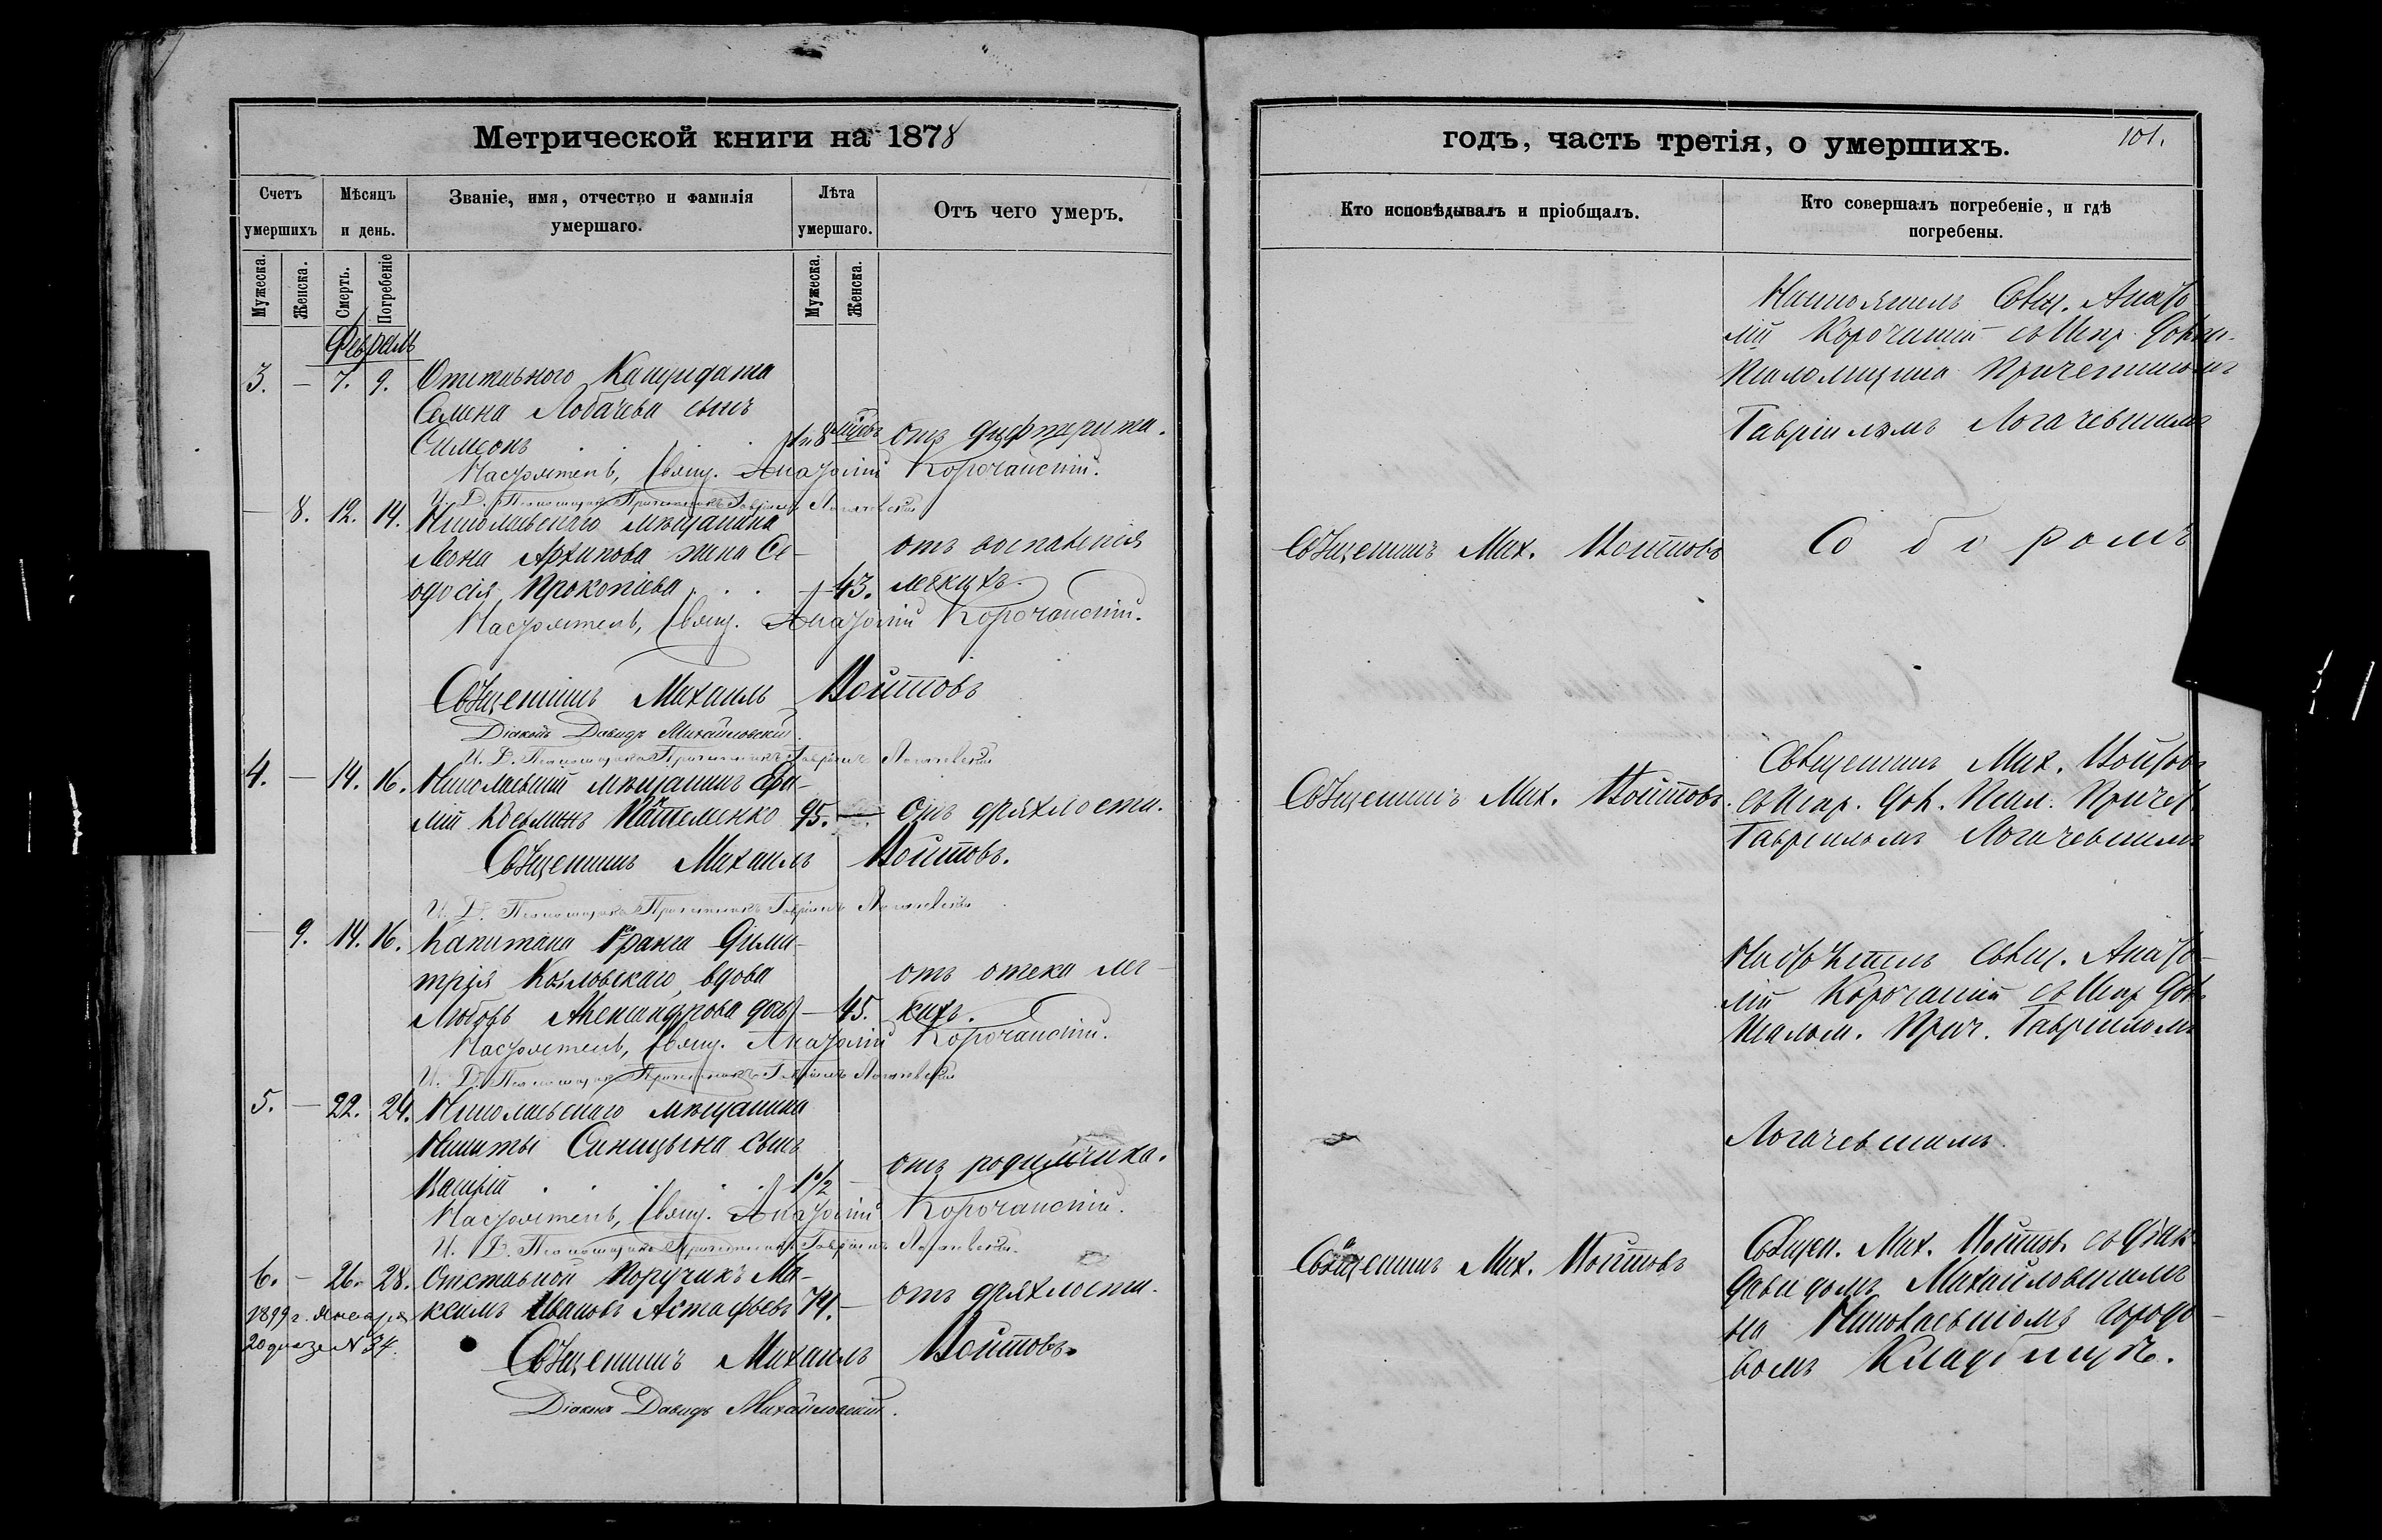 Метрической книги на 1878
Счетъ умершихъ
Мѣсяцъ и день.
Званіе, имя, отчество и фамилія умершаго.
Лѣта умершаго.
Отъ чего умеръ.
Мужеска.
Женска.
Смерть.
Погребеніе
Мужеска.
Женска.
Февраль
3. — 7. 9. Отставного
Семена Лобачева сынъ
Симеонъ . . . 8 отъ дифтерита.
Настоятель, Свящ. Анатолій Корочанскій.
И. Д. Псаломщика Причетникъ Гавріилъ Логачевскій
— 8. 12. 14. Николаевскаго мѣщанина
Архипова жена Ѳе- отъ воспаленія
одосія Прокопіева . . . — 43. легкихъ.
Настоятель, Свящ. Анатолій Корочанскій.
Священникъ Михаилъ Войтовъ
Діаконъ Давидъ Михайловскій.
И. Д. Псаломщика Причетникъ Гавріилъ Логачевскій
4. — 14. 16. Николаевскій мѣщанинъ
лій Косьминъ 95. — Отъ дряхлости.
Священникъ Михаилъ Войтовъ.
И. Д. Псаломщика Причетникъ Гавріилъ Логачевскій
— 9. 14. 16. Капитана 1го ранга Дими-
трія Козловскаго, вдова отъ отека лег-
Любовь Александрова — 45. кихъ.
Настоятель, Свящ. Анатолій Корочанскій.
И. Д. Псаломщика Причетникъ Гавріилъ Логачевскій
5. — 22. 24. Николаевскаго мѣщанина
Никиты Синицына сынъ
Василій . . . . 1 1/2 — отъ родимчика.
Настоятель, Свящ. Анатолій Корочанскій.
И. Д. Псаломщика Причетникъ Гавріилъ Логачевскій
6. — 26. 28. Отставной Поручикъ Ма-
ксимъ Ивановъ Астафьевъ 74. — отъ дряхлости.
1899 г. Января
20 дня за № 34.
Священникъ Михаилъ Войтовъ.
Діаконъ Давидъ Михайловскій.
годъ, часть третія, о умершихъ.
101.
Кто исповѣдывалъ и пріобщалъ.
Кто совершалъ погребеніе, и гдѣ погребены.
Настоятель Свящ. Анато-
лій Корочанскій съ Испр. Долж.
Псаломщика Причетникомъ
Гавріиломъ Логачевскимъ
Священникъ Мих. Войтовъ Соборомъ
Священникъ Мих. Войтовъ
Священникъ Мих. Войтовъ. съ Испр. Дол. Псал. Причет.
Гавріиломъ Логачевскимъ
Настоятель Свящ. Анато-
лій Корочанскій съ Испр. Дол.
Псалом. Прич. Гавріиломъ
Логачевскимъ.
Священ. Мих. Войтовъ съ Діак.
Священникъ Мих. Войтовъ
Давидомъ Михайловскимъ
на Николаевскомъ городс-
комъ Кладбищѣ.